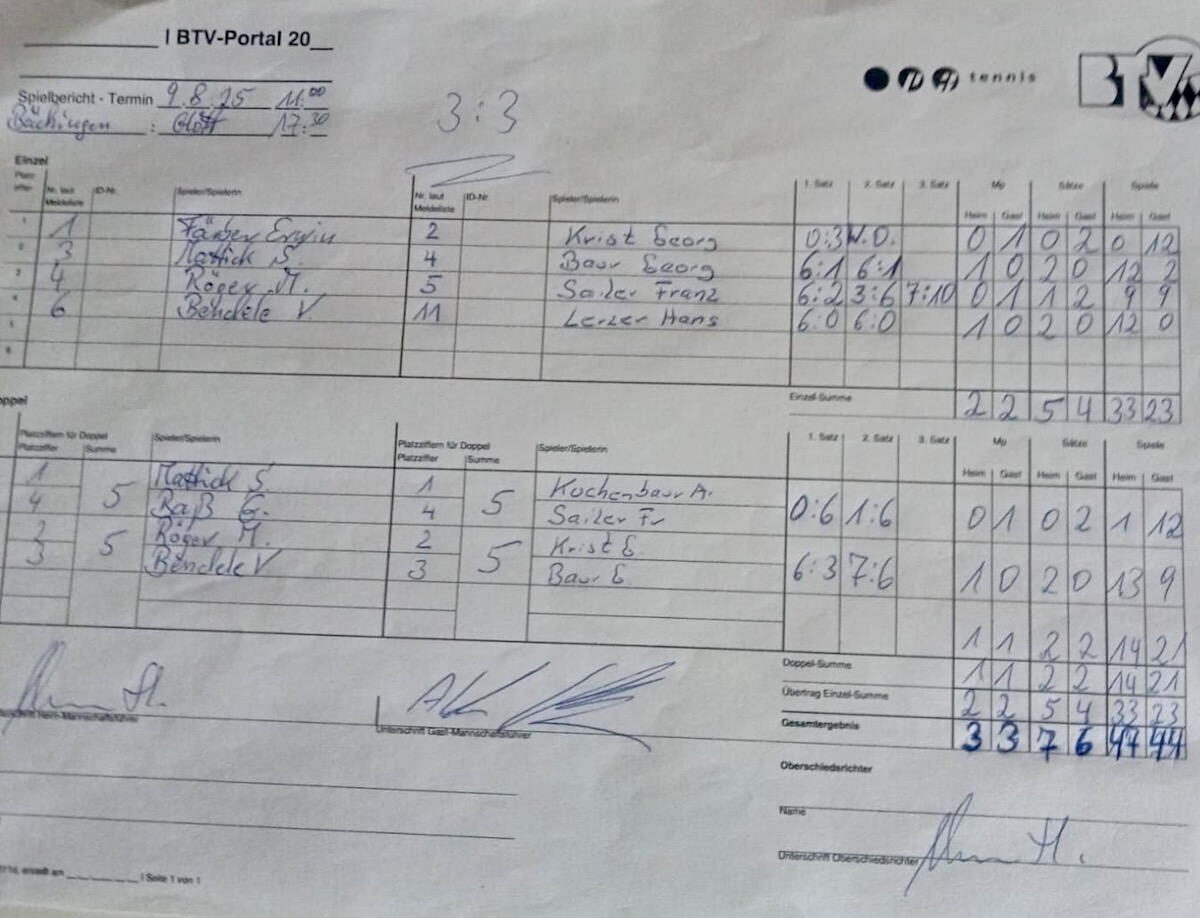 | BTV-Portal 20__
tennis
BTV
Spielbericht - Termin 9.8.25 11:00
Bächingen : Glött 17:30
3:3
Einzel
Nr. laut Meldeliste ID-Nr. Spieler/Spielerin Nr. laut Meldeliste ID-Nr. Spieler/Spielerin 1. Satz 2. Satz 3. Satz Mp Sätze Spiele
Heim Gast Heim Gast Heim Gast
1 1 Färber Erwin 2 Krist Georg 0:3 W.O. 0 1 0 2 0 12
2 3 Mattick S. 4 Baur Georg 6:1 6:1 1 0 2 0 12 2
3 4 Röger M. 5 Sailer Franz 6:2 3:6 7:10 0 1 1 2 9 9
4 6 Bendele V. 11 Lerzer Hans 6:0 6:0 1 0 2 0 12 0
5
6
Einzel-Summe 2 2 5 4 33 23
oppel
Platzziffern für Doppel Spieler/Spielerin Platzziffern für Doppel Spieler/Spielerin 1. Satz 2. Satz 3. Satz Mp Sätze Spiele
Platzziffer Summe Platzziffer Summe Heim Gast Heim Gast Heim Gast
1 5 Mattick S. 1 5 Kuchenbaur A. 0:6 1:6 0 1 0 2 1 12
4 Raß G. 4 Sailer Fr
2 5 Röger M. 2 5 Krist G. 6:3 7:6 1 0 2 0 13 9
3 Bendele V. 3 Baur G.
1 1 2 2 14 21
Doppel-Summe 1 1 2 2 14 21
Übertrag Einzel-Summe 2 2 5 4 33 23
Gesamtergebnis 3 3 7 6 47 44
Unterschrift Heim-Mannschaftsführer
Unterschrift Gast-Mannschaftsführer
Oberschiedsrichter
Name
Unterschrift Oberschiedsrichter
erstellt am ________ | Seite 1 von 1